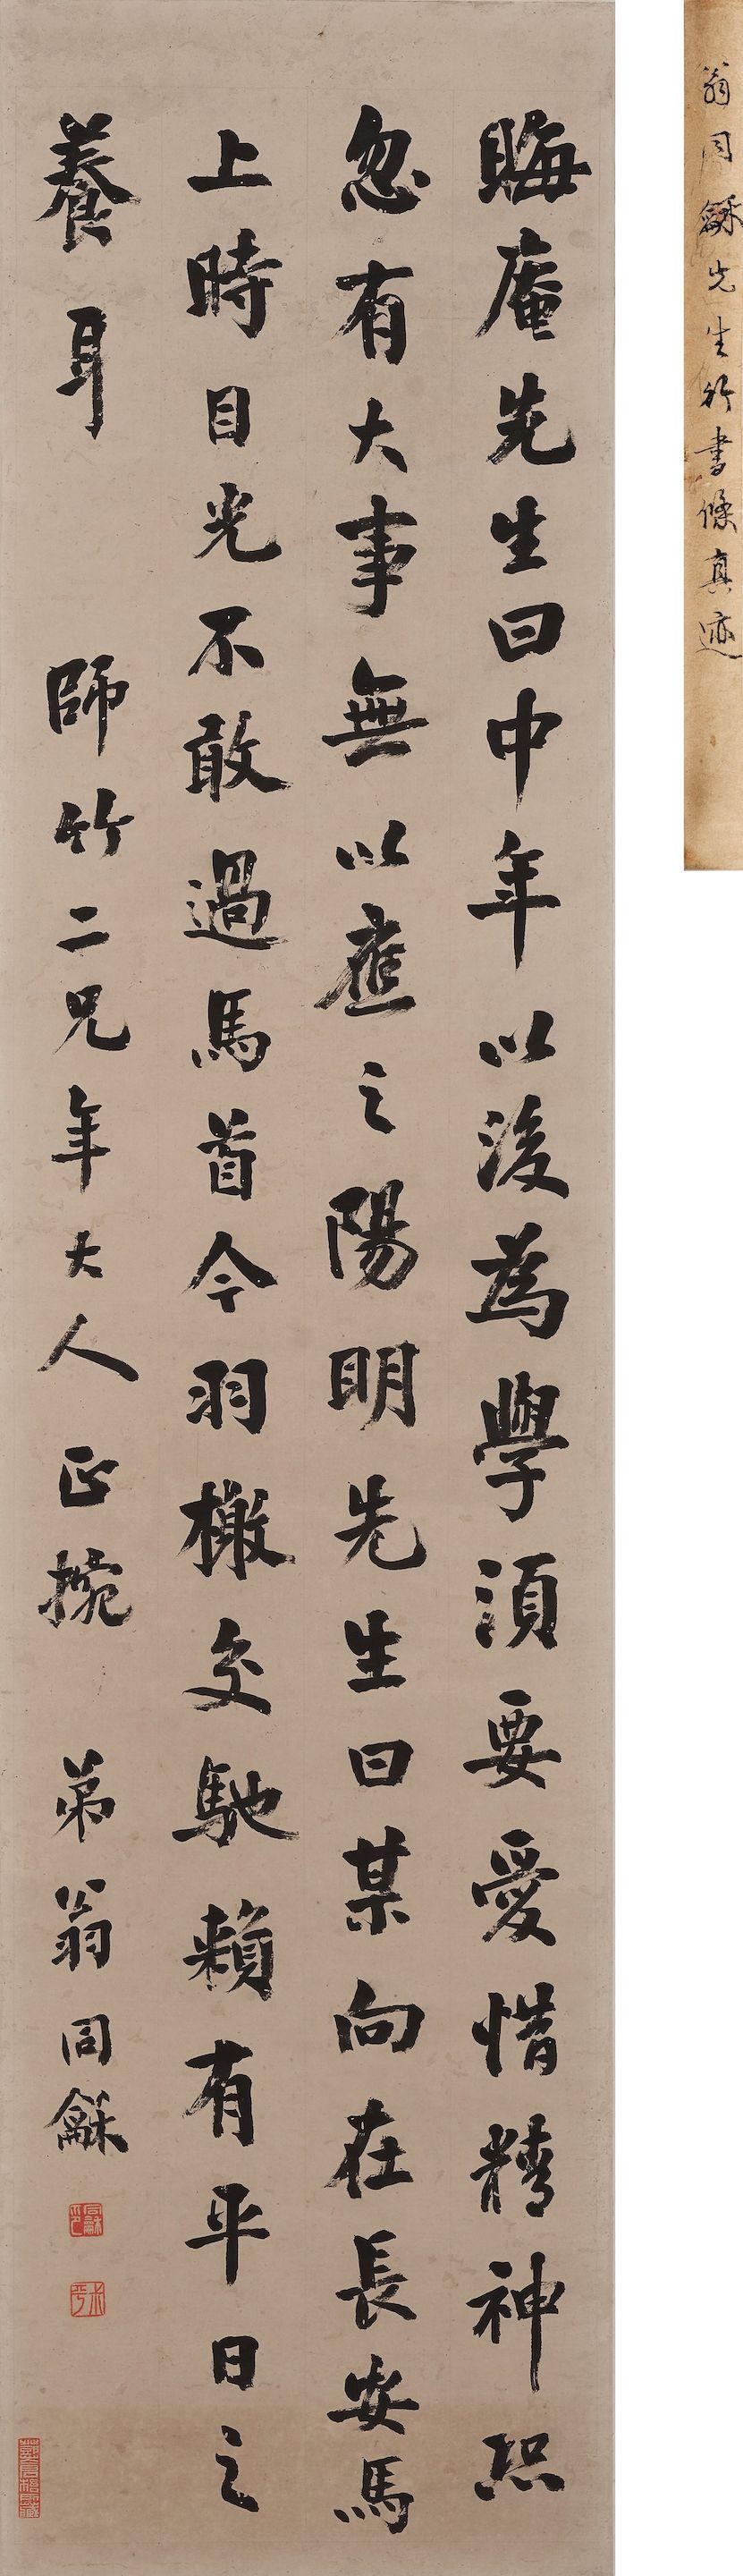 晦庵先生曰中年以後為學須要愛惜精神恐
忽有大事無以應之陽明先生曰某向在長安馬
上時目光不敢過馬首今羽檄交馳賴有平日之
養耳 師竹二兄年大人 正捥 弟翁同龢
同龢印
翁同龢先生行書條真迹